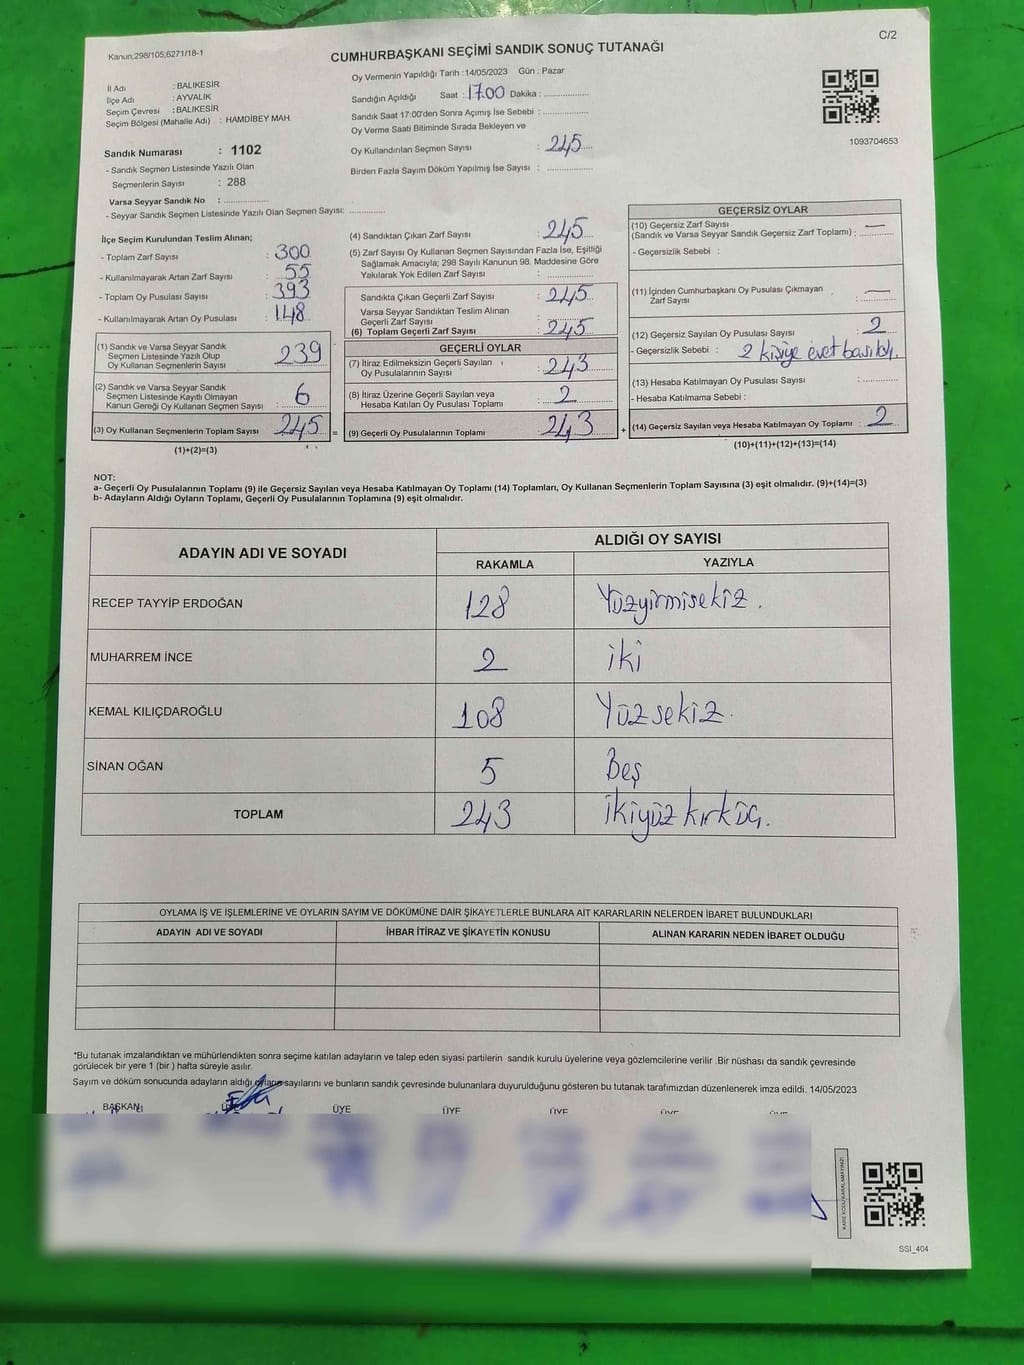 Kanun;298/105;6271/18-1
C/2
CUMHURBAŞKANI SEÇİMİ SANDIK SONUÇ TUTANAĞI
İl Adı : BALIKESİR
İlçe Adı : AYVALIK
Seçim Çevresi : BALIKESİR
Seçim Bölgesi (Mahalle Adı) : HAMDİBEY MAH.
Sandık Numarası : 1102
- Sandık Seçmen Listesinde Yazılı Olan
Seçmenlerin Sayısı : 288
Varsa Seyyar Sandık No :
- Seyyar Sandık Seçmen Listesinde Yazılı Olan Seçmen Sayısı:
Oy Vermenin Yapıldığı Tarih :14/05/2023 Gün : Pazar
Sandığın Açıldığı Saat : 17.00 Dakika :
Sandık Saat 17:00'den Sonra Açımış İse Sebebi :
Oy Verme Saati Bitiminde Sırada Bekleyen ve
Oy Kullandırılan Seçmen Sayısı : 245
Birden Fazla Sayım Döküm Yapılmış İse Sayısı :
1093704653
İlçe Seçim Kurulundan Teslim Alınan;
- Toplam Zarf Sayısı : 300
- Kullanılmayarak Artan Zarf Sayısı : 55
- Toplam Oy Pusulası Sayısı : 393
- Kullanılmayarak Artan Oy Pusulası : 148
(1) Sandık ve Varsa Seyyar Sandık
Seçmen Listesinde Yazılı Olup
Oy Kullanan Seçmenlerin Sayısı : 239
(2) Sandık ve Varsa Seyyar Sandık
Seçmen Listesinde Kayıtlı Olmayan
Kanun Gereği Oy Kullanan Seçmen Sayısı : 6
(3) Oy Kullanan Seçmenlerin Toplam Sayısı : 245 =
(1)+(2)=(3)
(4) Sandıktan Çıkan Zarf Sayısı : 245
(5) Zarf Sayısı Oy Kullanan Seçmen Sayısından Fazla İse, Eşitliği
Sağlamak Amacıyla; 298 Sayılı Kanunun 98. Maddesine Göre
Yakılarak Yok Edilen Zarf Sayısı :
Sandıkta Çıkan Geçerli Zarf Sayısı : 245
Varsa Seyyar Sandıktan Teslim Alınan
Geçerli Zarf Sayısı :
(6) Toplam Geçerli Zarf Sayısı : 245
GEÇERLİ OYLAR
(7) İtiraz Edilmeksizin Geçerli Sayılan
Oy Pusulalarının Sayısı : 243
(8) İtiraz Üzerine Geçerli Sayılan veya
Hesaba Katılan Oy Pusulası Toplamı : 2
(9) Geçerli Oy Pusulalarının Toplamı : 243 +
GEÇERSİZ OYLAR
(10) Geçersiz Zarf Sayısı —
(Sandık ve Varsa Seyyar Sandık Geçersiz Zarf Toplamı) :
- Geçersizlik Sebebi :
(11) İçinden Cumhurbaşkanı Oy Pusulası Çıkmayan —
Zarf Sayısı :
(12) Geçersiz Sayılan Oy Pusulası Sayısı : 2
- Geçersizlik Sebebi : 2 kişiye evet basıldı.
(13) Hesaba Katılmayan Oy Pusulası Sayısı :
- Hesaba Katılmama Sebebi :
(14) Geçersiz Sayılan veya Hesaba Katılmayan Oy Toplamı : 2
(10)+(11)+(12)+(13)=(14)
NOT:
a- Geçerli Oy Pusulalarının Toplamı (9) ile Geçersiz Sayılan veya Hesaba Katılmayan Oy Toplamı (14) Toplamları, Oy Kullanan Seçmenlerin Toplam Sayısına (3) eşit olmalıdır. (9)+(14)=(3)
b- Adayların Aldığı Oyların Toplamı, Geçerli Oy Pusulalarının Toplamına (9) eşit olmalıdır.
ADAYIN ADI VE SOYADI
ALDIĞI OY SAYISI
RAKAMLA YAZIYLA
RECEP TAYYİP ERDOĞAN 128 Yüzyirmisekiz.
MUHARREM İNCE 2 iki
KEMAL KILIÇDAROĞLU 108 Yüzsekiz.
SİNAN OĞAN 5 Beş
TOPLAM 243 İkiyüz kırküç.
OYLAMA İŞ VE İŞLEMLERİNE VE OYLARIN SAYIM VE DÖKÜMÜNE DAİR ŞİKAYETLERLE BUNLARA AİT KARARLARIN NELERDEN İBARET BULUNDUKLARI
ADAYIN ADI VE SOYADI İHBAR İTİRAZ VE ŞİKAYETİN KONUSU ALINAN KARARIN NEDEN İBARET OLDUĞU
*Bu tutanak imzalandıktan ve mühürlendikten sonra seçime katılan adayların ve talep eden siyasi partilerin sandık kurulu üyelerine veya gözlemcilerine verilir .Bir nüshası da sandık çevresinde
görülecek bir yere 1 (bir ) hafta süreyle asılır.
Sayım ve döküm sonucunda adayların aldığı oyların sayılarını ve bunların sandık çevresinde bulunanlara duyurulduğunu gösteren bu tutanak tarafımızdan düzenlenerek imza edildi. 14/05/2023
BAŞKAN ÜYE ÜYE ÜYE ÜYE ÜYE
SSI_404